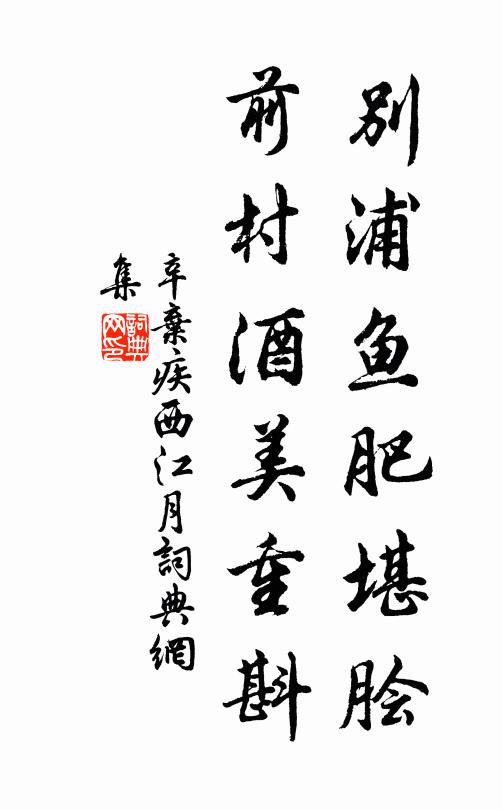 别浦鱼肥堪脍
前村酒美重斟
辛棄疾西江月詞典網
集
詞典網印